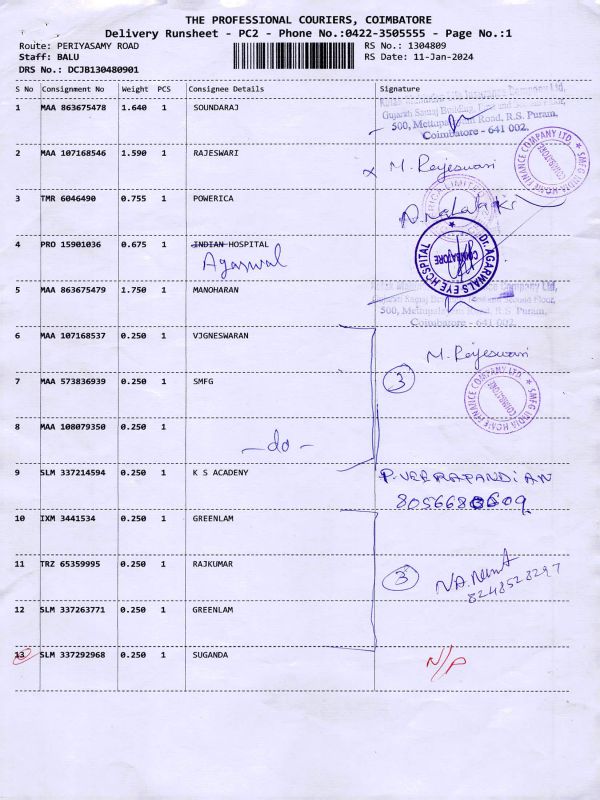 THE PROFESSIONAL COURIERS, COIMBATORE
Delivery Runsheet - PC2 - Phone No.:0422-3505555 - Page No.:1
Route: PERIYASAMY ROAD RS No.: 1304809
Staff: BALU RS Date: 11-Jan-2024
DRS No.: DCJB130480901
S No Consignment No Weight PCS Consignee Details Signature
1 MAA 863675478 1.640 1 SOUNDARAJ
500, Mettupalayam Road, R.S. Puram,
Coimbatore - 641 002.
2 MAA 107168546 1.590 1 RAJESWARI M. Rajeswari
SMFG INDIA HOME FINANCE COMPANY LTD. * COIMBATORE
3 TMR 6046490 0.755 1 POWERICA
4 PRO 15901036 0.675 1 INDIAN HOSPITAL
Agarwal
Dr. AGARWALS EYE HOSPITAL * COIMBATORE
5 MAA 863675479 1.750 1 MANOHARAN
500, Mettupalayam Road, R.S. Puram,
Coimbatore - 641 002.
6 MAA 107168537 0.250 1 VJGNESWARAN M. Rajeswari
7 MAA 573836939 0.250 1 SMFG 3
SMFG INDIA HOME FINANCE COMPANY LTD. * COIMBATORE
8 MAA 108079350 0.250 1
- do -
9 SLM 337214594 0.250 1 K S ACADENY P. VEERAPANDIAN
8056680609
10 IXM 3441534 0.250 1 GREENLAM
11 TRZ 65359995 0.250 1 RAJKUMAR 3
8248528297
12 SLM 337263771 0.250 1 GREENLAM
13 SLM 337292968 0.250 1 SUGANDA N/P